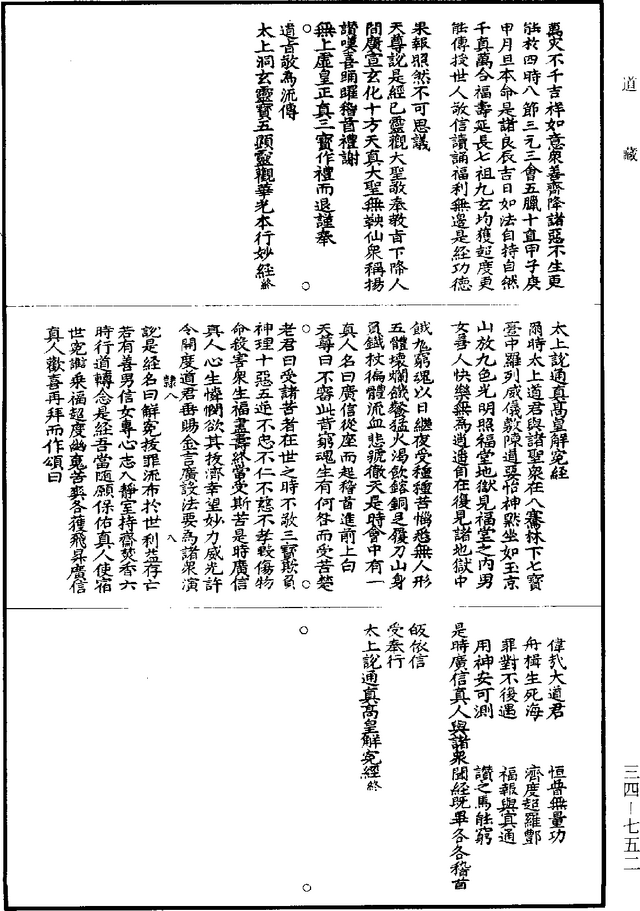 道藏
萬灾不干吉祥如意衆善齊降諸惡不生更
能於四時八節三元三會五臘十直甲子庚
申月旦本命是諸良辰吉日如法自持自然
千真萬合福壽延長七祖九玄均獲超度更
能傳授世人敬信讀誦福利無邊是經功德
果報照然不可思議
天尊說是經已靈觀大聖敬奉教旨下降人
間廣宣玄化十方天真大聖無鞅仙衆稱揚
讚嘆喜踊躍稽首禮謝
無上虛皇正真三寶作禮而退謹奉
遺旨敬為流傳
太上洞玄靈寶五顯靈觀華光本行妙經終
太上說通真高皇解冤經
爾時太上道君與諸聖衆在八騫林下七寶
臺中羅列威儀敷陳道惡怡神默坐如玉京
山放九色光明照福堂地獄見福堂之内男
女喜人快樂無為逍遥自在復見諸地獄中
餓鬼窮魂以日繼夜受種種苦惱悉無人形
五體壞爛饑飡猛火渴飲鎔銅足履刀山身
負鐵杖徧體流血悲號徹天是時會中有一
真人名曰廣信從座而起稽首進前上白
天尊曰不審此苦窮魂生有何咎而受苦楚
老君曰受諸苦者在世之時不敬三寶欺負
神理十惡五逆不忠不仁不慈不孝毀傷物
命殺害衆生福盡壽終當受斯苦是時廣信
真人心生憐憫欲其拔濟幸望妙力威光許
令開度道君垂賜金言廣設法要為諸衆演
隸八 八
說是經名曰解冤拔罪流布於世利益存亡
若有善男信女專心志入靜室持齋焚香六
時行道轉念是經吾當随願保佑真人使宿
世冤謝乗福超度幽寃苦爽各穫飛昇廣信
真人歡喜再拜而作頌曰
偉哉大道君 恒普無量功
舟楫生死海 濟度超羅酆
罪對不復遇 福報與真通
用神安可測 讚之焉能窮
是時廣信真人與諸衆聞經既畢各各稽首
皈依信
受奉行
太上說通真高皇解冤經終
三四—七五二